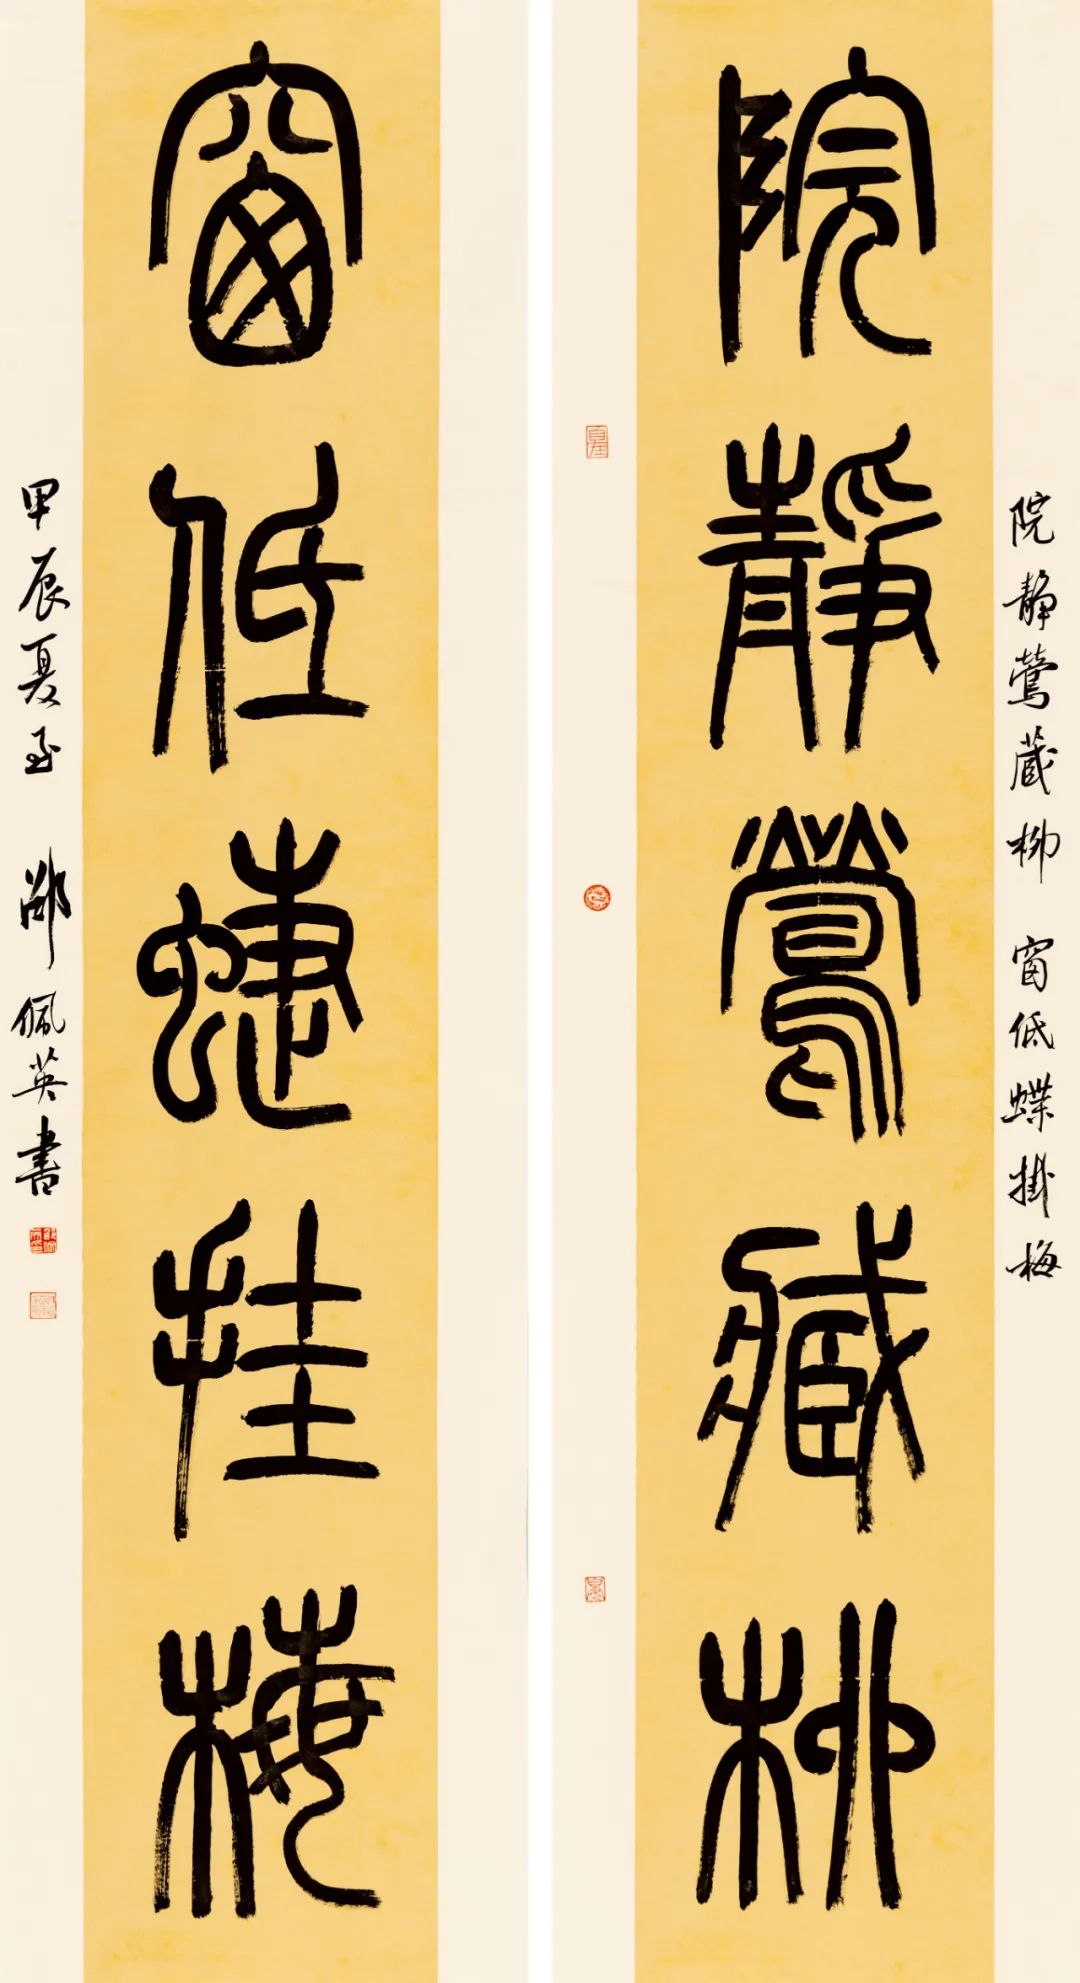 院静鶯藏柳 窗低蝶掛梅
院靜鶯臧柳
窗低蜨挂梅
甲辰夏至 邵佩英書